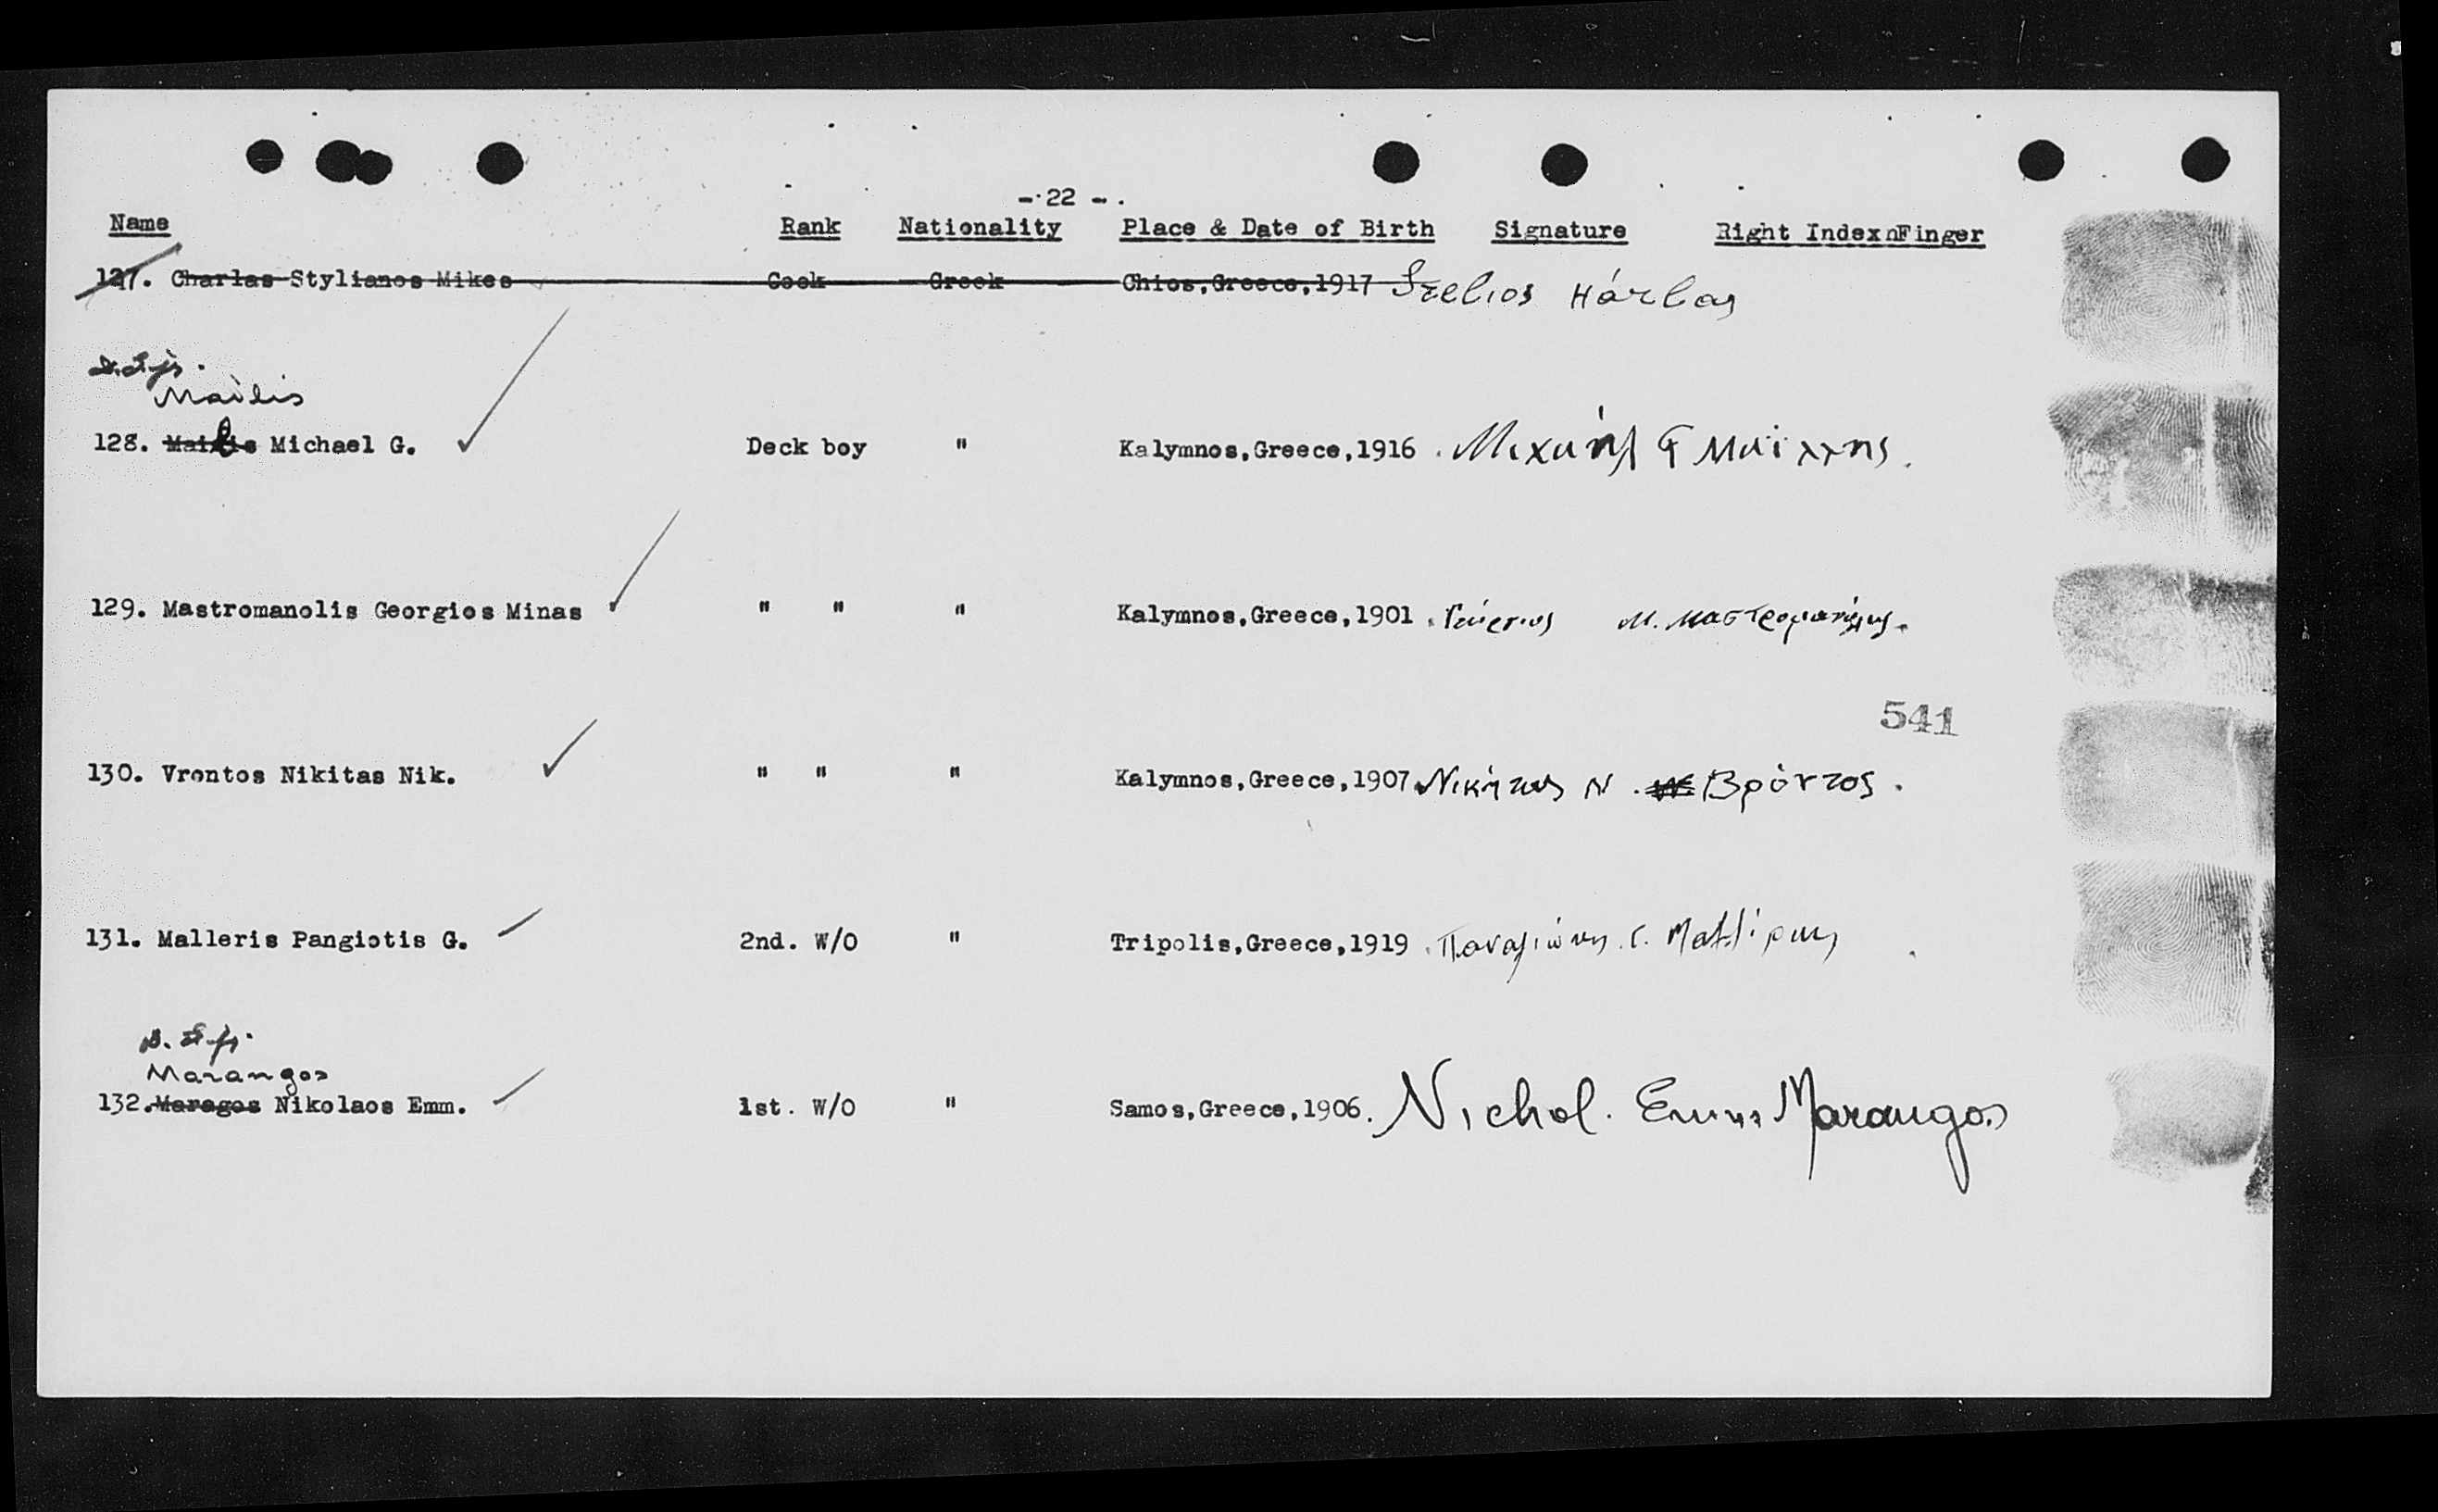 - 22 -
Name Rank Nationality Place & Date of Birth Signature Right IndexnFinger
127. Charlas Stylianos Mikes Cook Greek Chios,Greece,1917 Stelios Hárlas
Mailis
128. Michael G. Deck boy " Kalymnos,Greece,1916 Μιχαήλ Γ Μαΐλλης.
129. Mastromanolis Georgios Minas " " " Kalymnos,Greece,1901 Γεώργιος Μ. Μαστρομανώλης.
541
130. Vrontos Nikitas Nik. " " " Kalymnos,Greece,1907 Νικήτας Ν. Βρόντος.
131. Malleris Pangiotis G. 2nd. W/O " Tripolis,Greece,1919 Παναγιώτης Γ.
Marangos
132. Maragos Nikolaos Emm. 1st. W/O " Samos,Greece,1906. Nichol. Emm Marangos